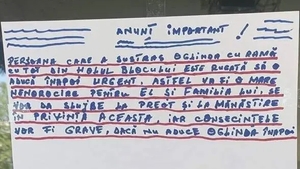 ANUNȚ IMPORTANT!
PERSOANA CARE A SUSTRAS OGLINDA CU RAMĂ
CU TOT DIN HOLUL BLOCULUI ESTE RUGATĂ SĂ O
ADUCĂ ÎNAPOI URGENT. ASTFEL VA FI O MARE
NENOROCIRE PENTRU EL ȘI FAMILIA LUI, SE
VOR DA SLUJBE LA PREOT ȘI LA MĂNĂSTIRE
ÎN PRIVINȚA ACEASTA, IAR CONSECINȚELE
VOR FI GRAVE, DACĂ NU ADUCE OGLINDA ÎNAPOI